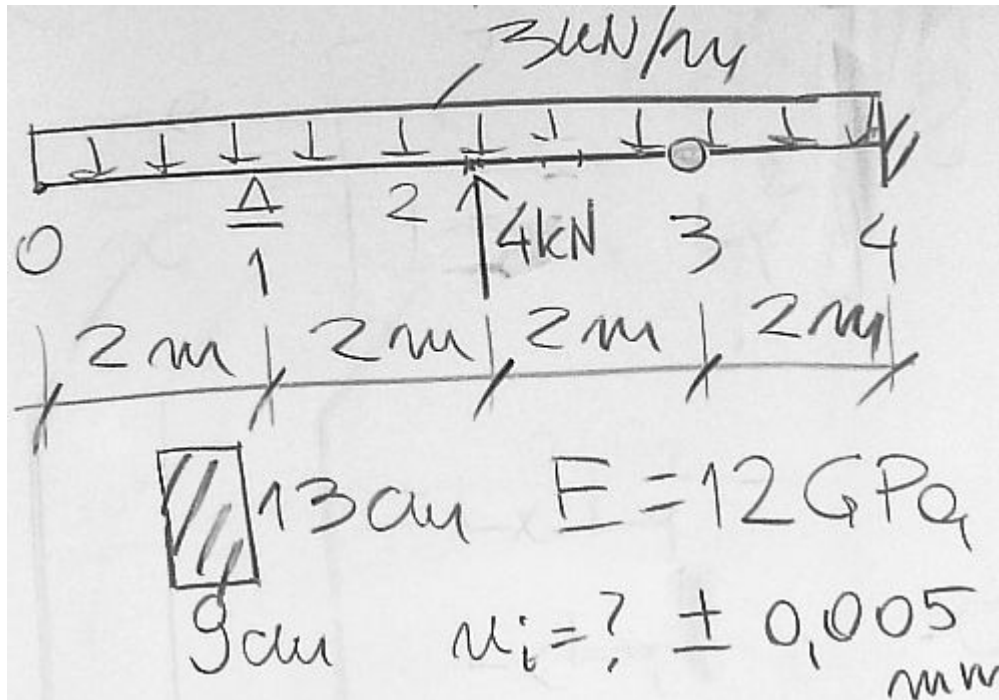 3kN/m
0 1 2 4kN 3 4
2m 2m 2m 2m
13cm E=12GPa
9cm u i =? ± 0,005
mm